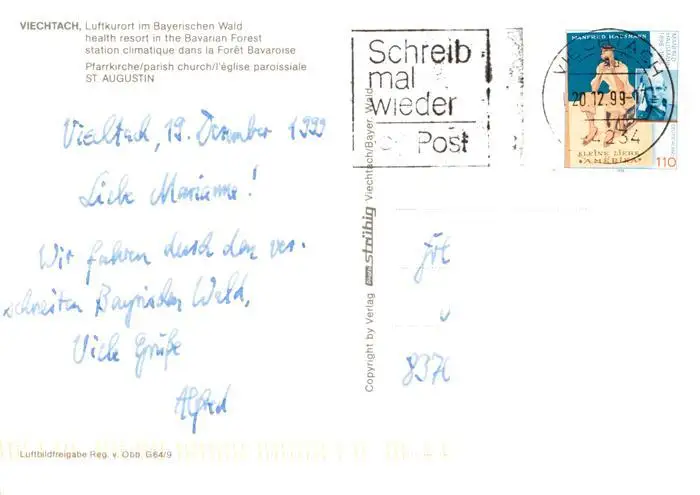 VIECHTACH, Luftkurort im Bayerischen Wald
health resort in the Bavarian Forest
station climatique dans la Forêt Bavaroise
Pfarrkirche/parish church/l'église paroissiale
ST. AUGUSTIN
Viechtach, 19. Dezember 1999
Liebe Marianne!
Wir fahren durch den ver-
schneiten Bayrischen Wald,
Viele Grüße
Alfred
Luftbildfreigabe Reg. v. Obb. G64/9
Copyright by Verlag stührig Viechtach/Bayer. Wald
Schreib
mal
wieder
Post
VIECHTACH
20.12.99-17
234
MANFRED HAUSMANN
MANFRED HAUSMANN
1898-1986
DEUTSCHLAND
KLEINE LIEBE
ZU AMERIKA
110
8370